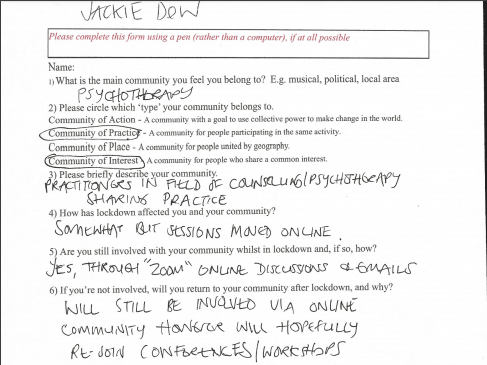 JACKIE DOW
Please complete this form using a pen (rather than a computer), if at all possible
Name:
1) What is the main community you feel you belong to? E.g. musical, political, local area
PSYCHOTHERAPY
2) Please circle which 'type' your community belongs to.
Community of Action - A community with a goal to use collective power to make change in the world.
Community of Practice - A community for people participating in the same activity.
Community of Place - A community for people united by geography.
Community of Interest - A community for people who share a common interest.
3) Please briefly describe your community.
PRACTITIONERS IN FIELD OF COUNSELLING/PSYCHOTHERAPY
SHARING PRACTICE
4) How has lockdown affected you and your community?
SOMEWHAT BUT SESSIONS MOVED ONLINE.
5) Are you still involved with your community whilst in lockdown and, if so, how?
YES, THROUGH "ZOOM" ONLINE DISCUSSIONS & EMAILS
6) If you're not involved, will you return to your community after lockdown, and why?
WILL STILL BE INVOLVED VIA ONLINE
COMMUNITY HOWEVER WILL HOPEFULLY
RE-JOIN CONFERENCES/WORKSHOPS